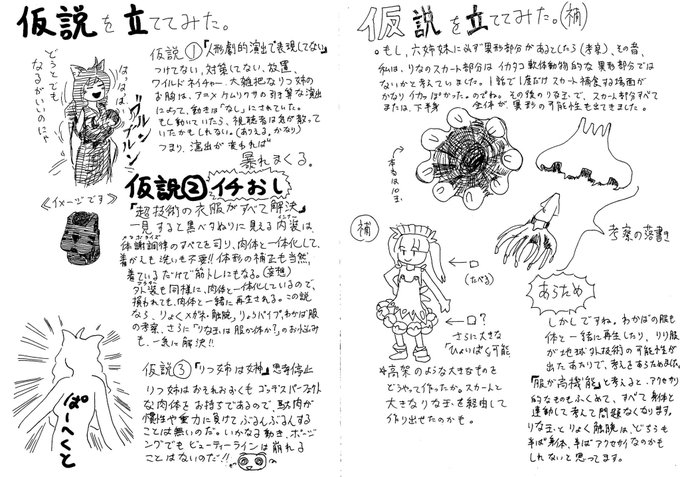 仮説を立ててみた。
どうとでも
なるがいいのにゃ
はっはっは
ブルン
ブルーン
仮説①『人形劇的演出で表現してない』
つけてない、対策してない、放置、
ワイルドネイチャー、大雑把なりつ姉の
お胸は、アニメケムリクサの引き算な演出
によって、動きは「なし」にされていた。
もし動いていたら、視聴者は気が散って
いたかもしれない。(ありえる、かなり)
つまり、演出が変われば
暴れまくる。
≪イメージです≫
仮説②イチおし
『超技術の衣服がすべて解決』
一見すると黒ベタぬりに見える内装は、
体調調律のすべてを司り、肉体と一体化して、
着がえも洗いも不要!!体形の補正も当然、
着ているだけで筋トレにもなる。(妄想)
外装も同様に、肉体と一体化しているので、
損われても、肉体と一緒に再生される。この説
なら、りょくメガネ、触腕、りょうパイプ、わかば服
の考察、さらに「りな玉は服か体か?」のお悩み
も、一気に解決!!
ぱーへくと
仮説③『りつ姉は女神』思考停止
りつ姉はおそれおおくもゴッデスパーフェクト
な肉体をお持ちであるので、駄肉が
慣性や重力に負けてぶるんぶるんする
ことは無いのだ。いかなる動き、ポージ
ングでもビューティーラインは崩れる
ことはないのだ!!
仮説を立ててみた。(補)
。もし、六姉妹に必ず異形部分があるとしたら(考察)、その昔、
私は、りなのスカート部分はイカタコ軟体動物的な異形部分では
ないかと考えていました。1話で1度だけスカート捕食する場面が
かなりイカっぽかった。のでね。その後のりな玉で、スカート部すべて
または、下半身全体が、異形の可能性も出てきました。
本当は10玉
補
←口
(たべる)
←口?
さらに大きな
「ひょいぱく」可能
*高架のような大きなものを
どうやって作ったか。スカートと
大きなりな玉を経由して
作り出せたのかも。
考察の落書き
あらため
しかしですね。わかばの服も
体と一緒に再生したり、りり服
が地球外技術の可能性が
出たあたりで、考えをあらためました。
「服が高機能」と考えると、アクセサリ
的なものもふくめて、すべて身体と
連動して考えて問題なくなります。
りな玉とりょく触腕は、どちらも
半ば身体、半ばアクセサイなのかも
しれないと思ってます。